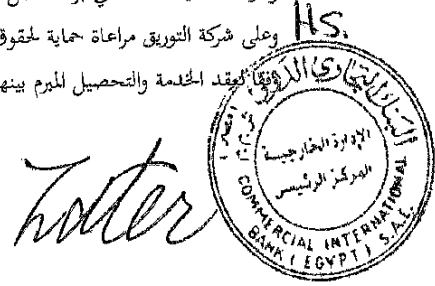 H.S.
وعلى شركة التوريق مراعاة حماية لحقوق
وفقا لعقد الخدمة والتحصيل المبرم بينه
البنك التجاري الدولي
الإدارة الخارجية
المركز الرئيسى
COMMERCIAL INTERNATIONAL
BANK (EGYPT) S.A.E.